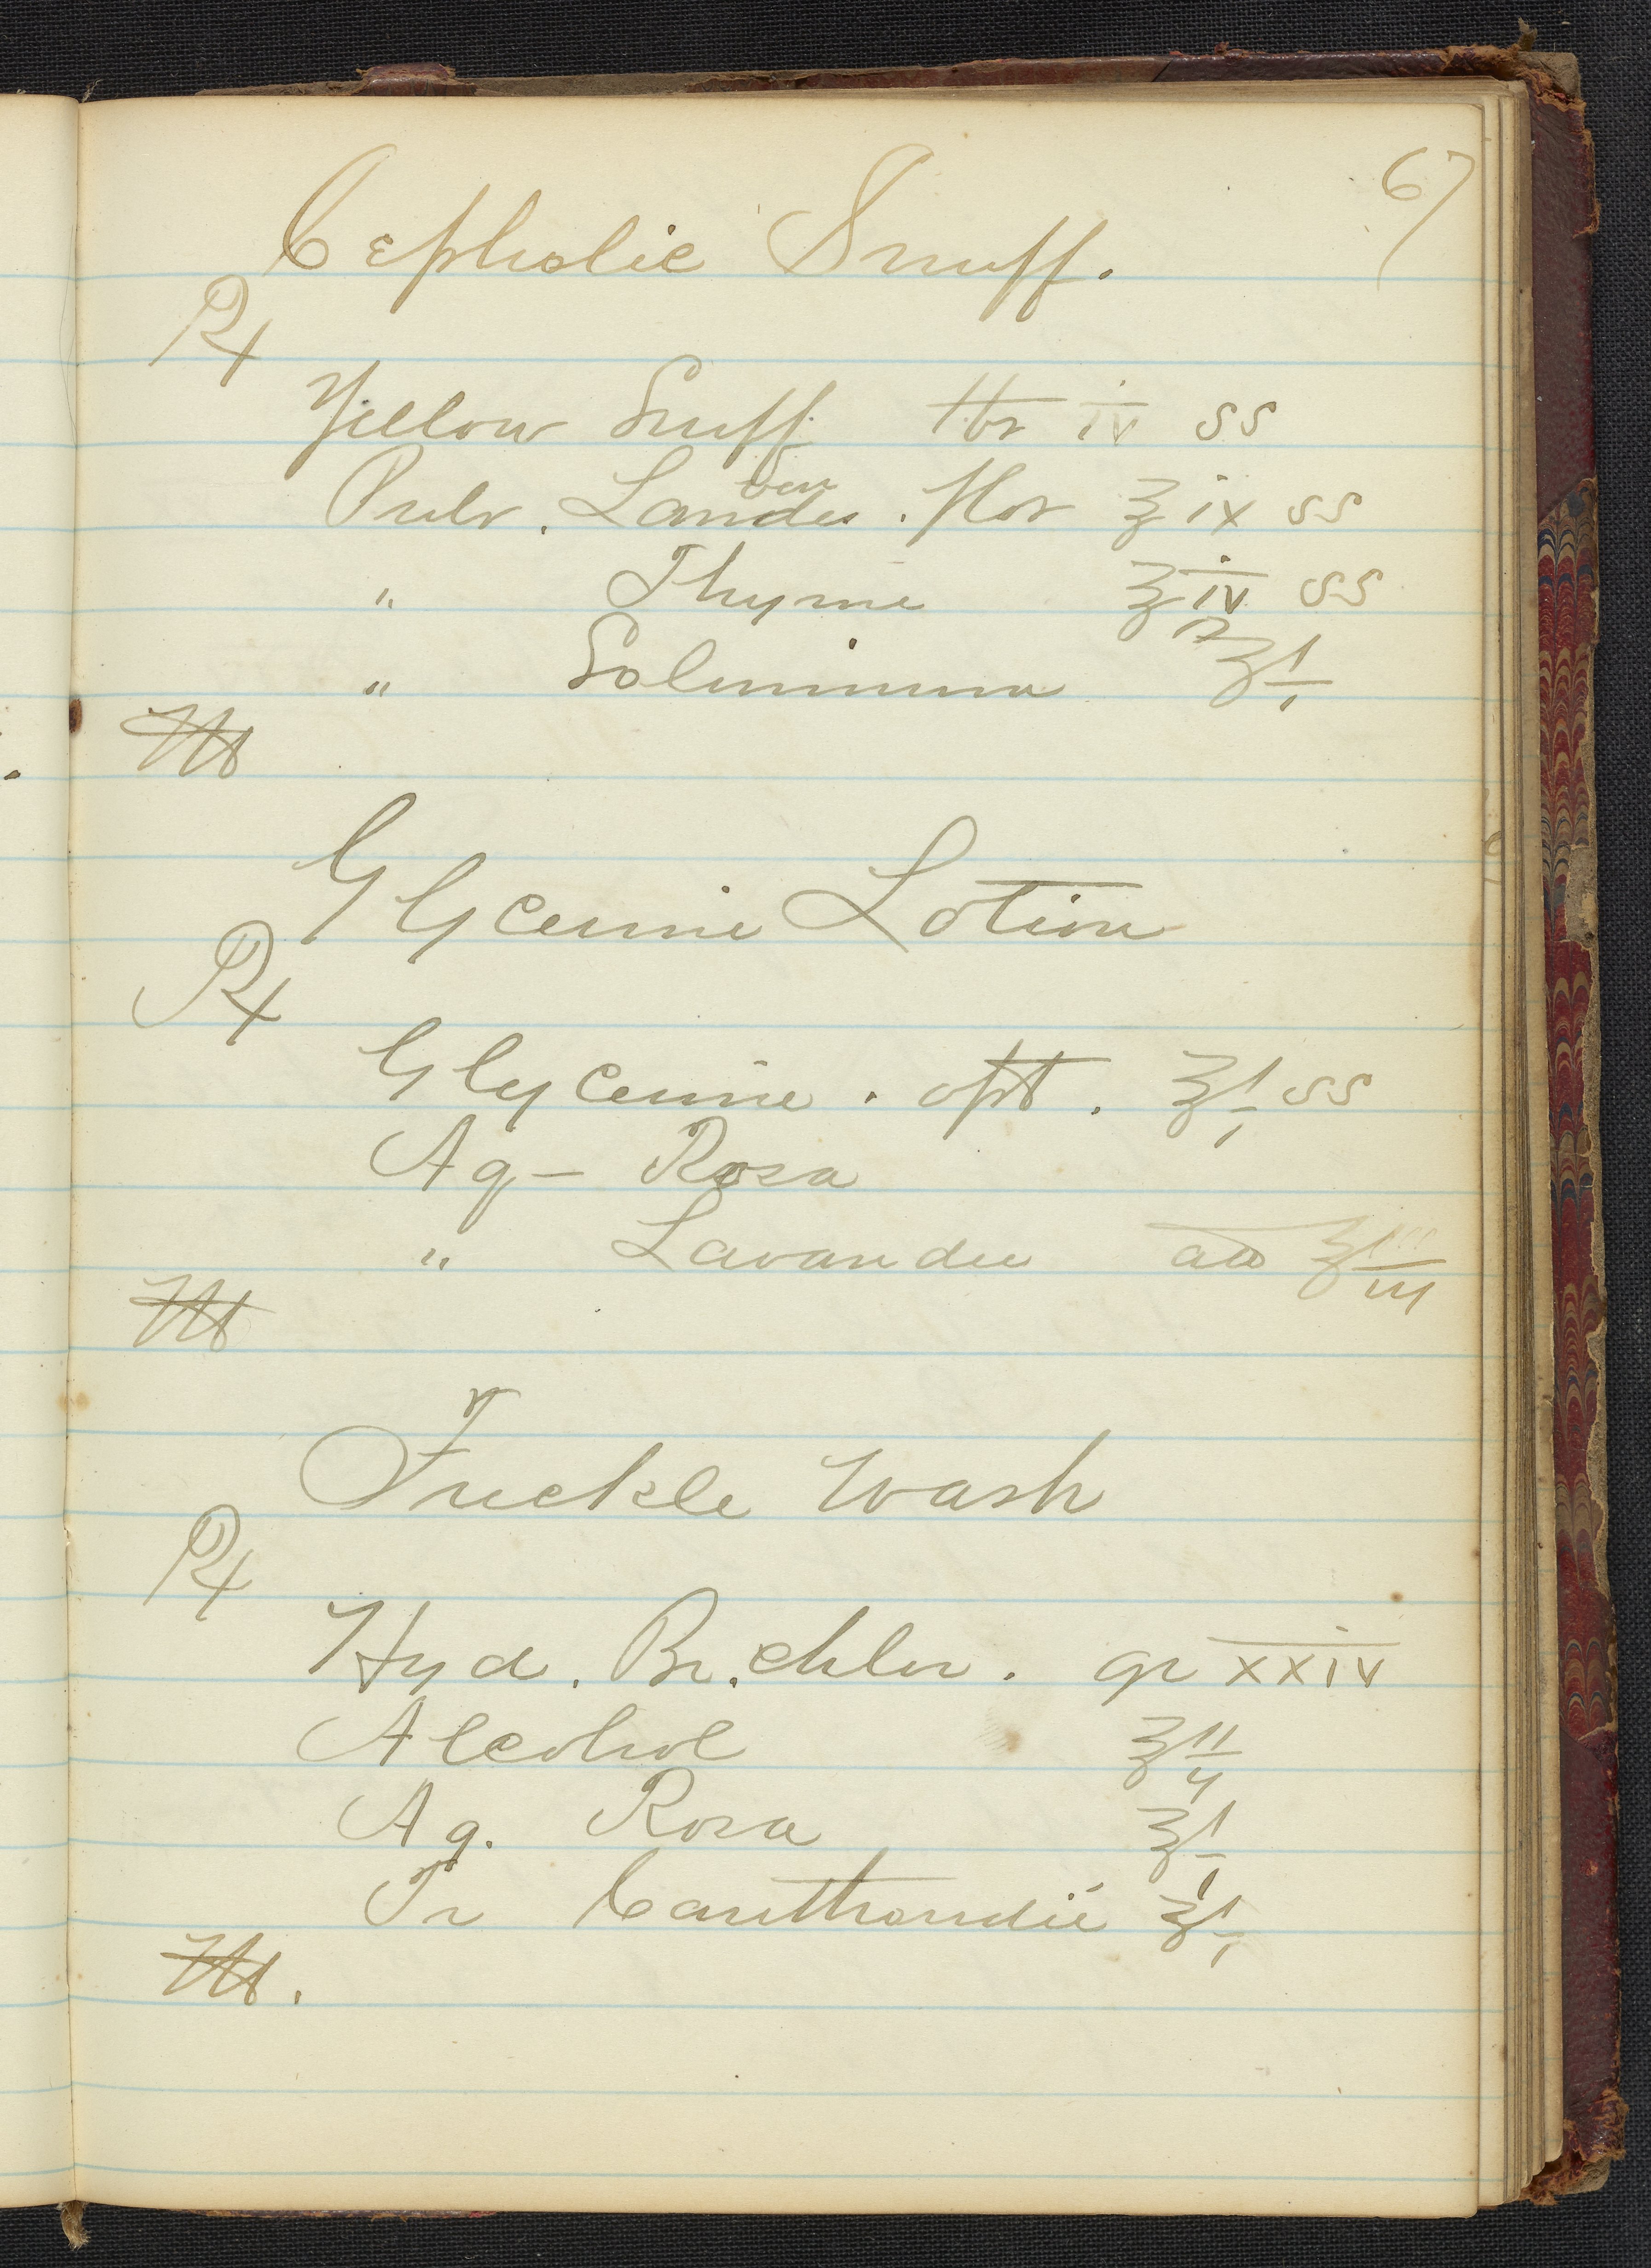 67
Cephalic Snuff.
℞
Yellow Snuff lbs iv ss
Pulv. Lavender. flor ℥ ix ss
" Thyme ℥ iv ss
"
M
Glycerine Lotion
℞
Glycerine. opt. ℥ i ss
Aq - Rosa
" Lavandu aa ℥ iii
M
Freckle Wash
℞
Hyd. Bi. chlor. gr xxiv
Alcohol ℥ ii
Aq. Rosa ℥ i
Tr ℥ i
M.